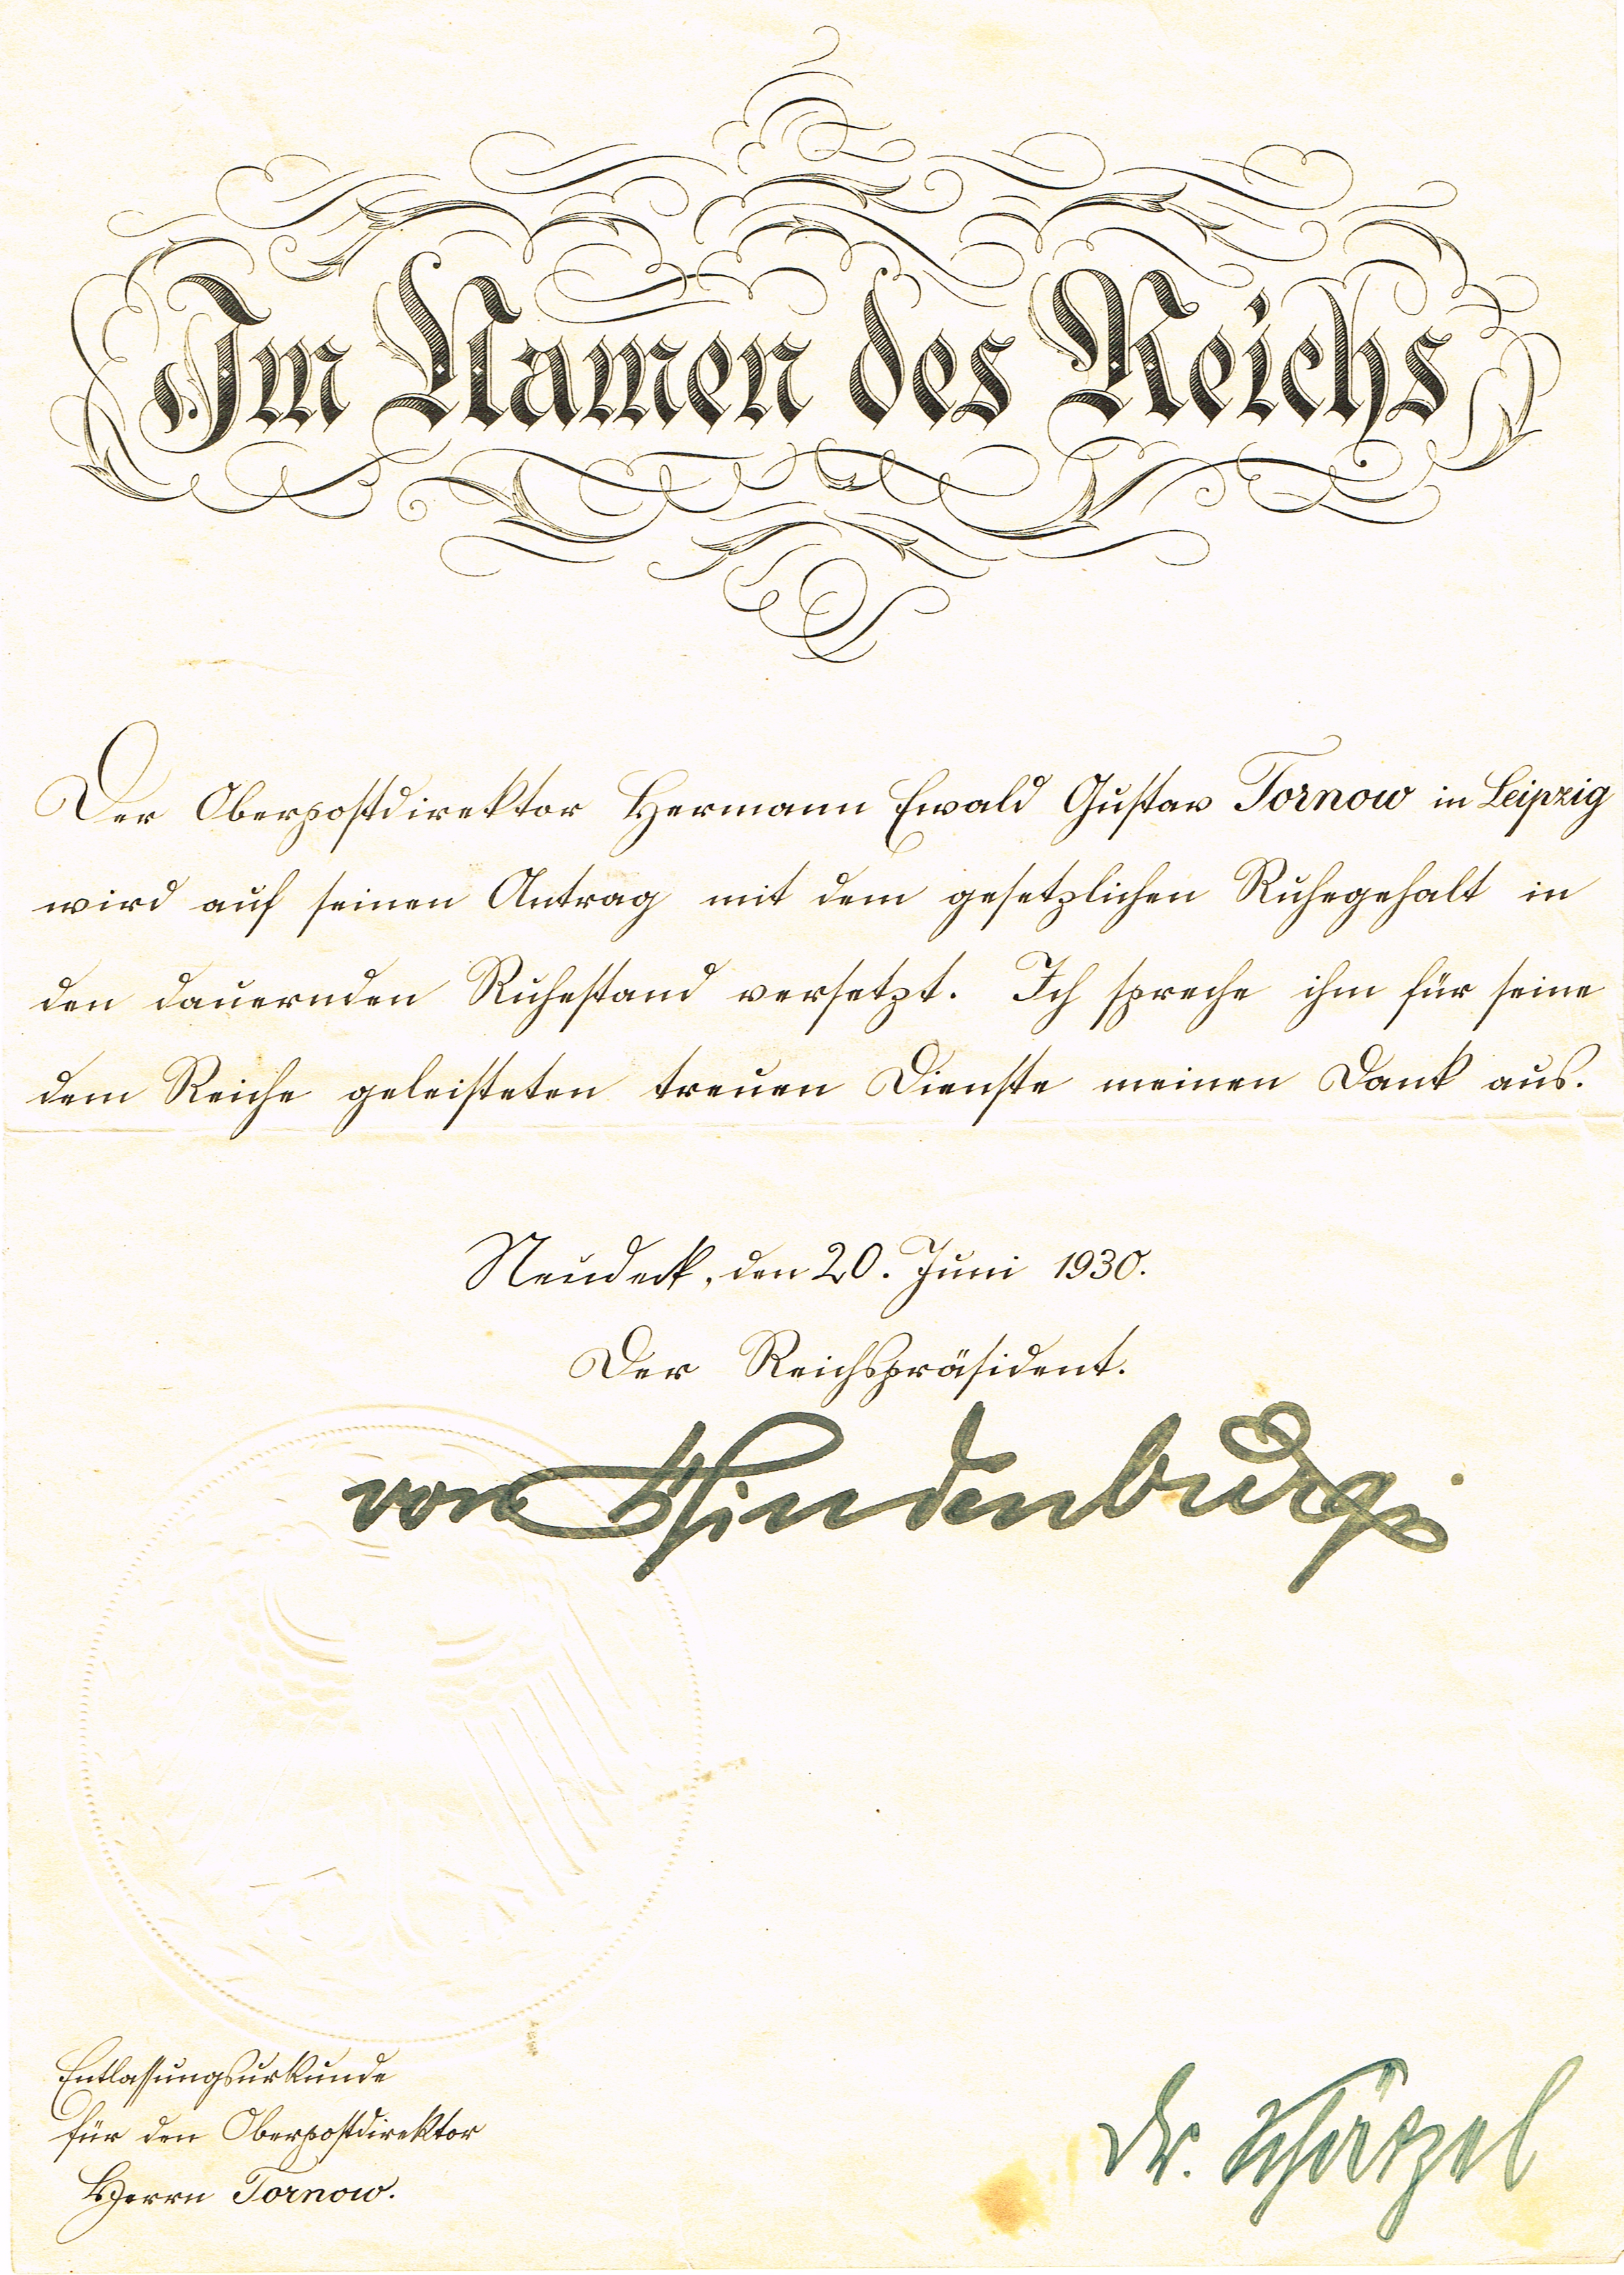 Im Namen des Reichs
Der Oberpostdirektor Hermann Ewald Gustav Tornow in Leipzig
wird auf seinen Antrag mit dem gesetzlichen Ruhegehalt in
den dauernden Ruhestand versetzt. Ich spreche ihm für seine
dem Reiche geleisteten treuen Dienste meinen Dank aus.
Neudeck, den 20. Juni 1930.
Der Reichspräsident.
von Hindenburg
Entlassungsurkunde
für den Oberpostdirektor
Herrn Tornow.
Dr. Schätzel